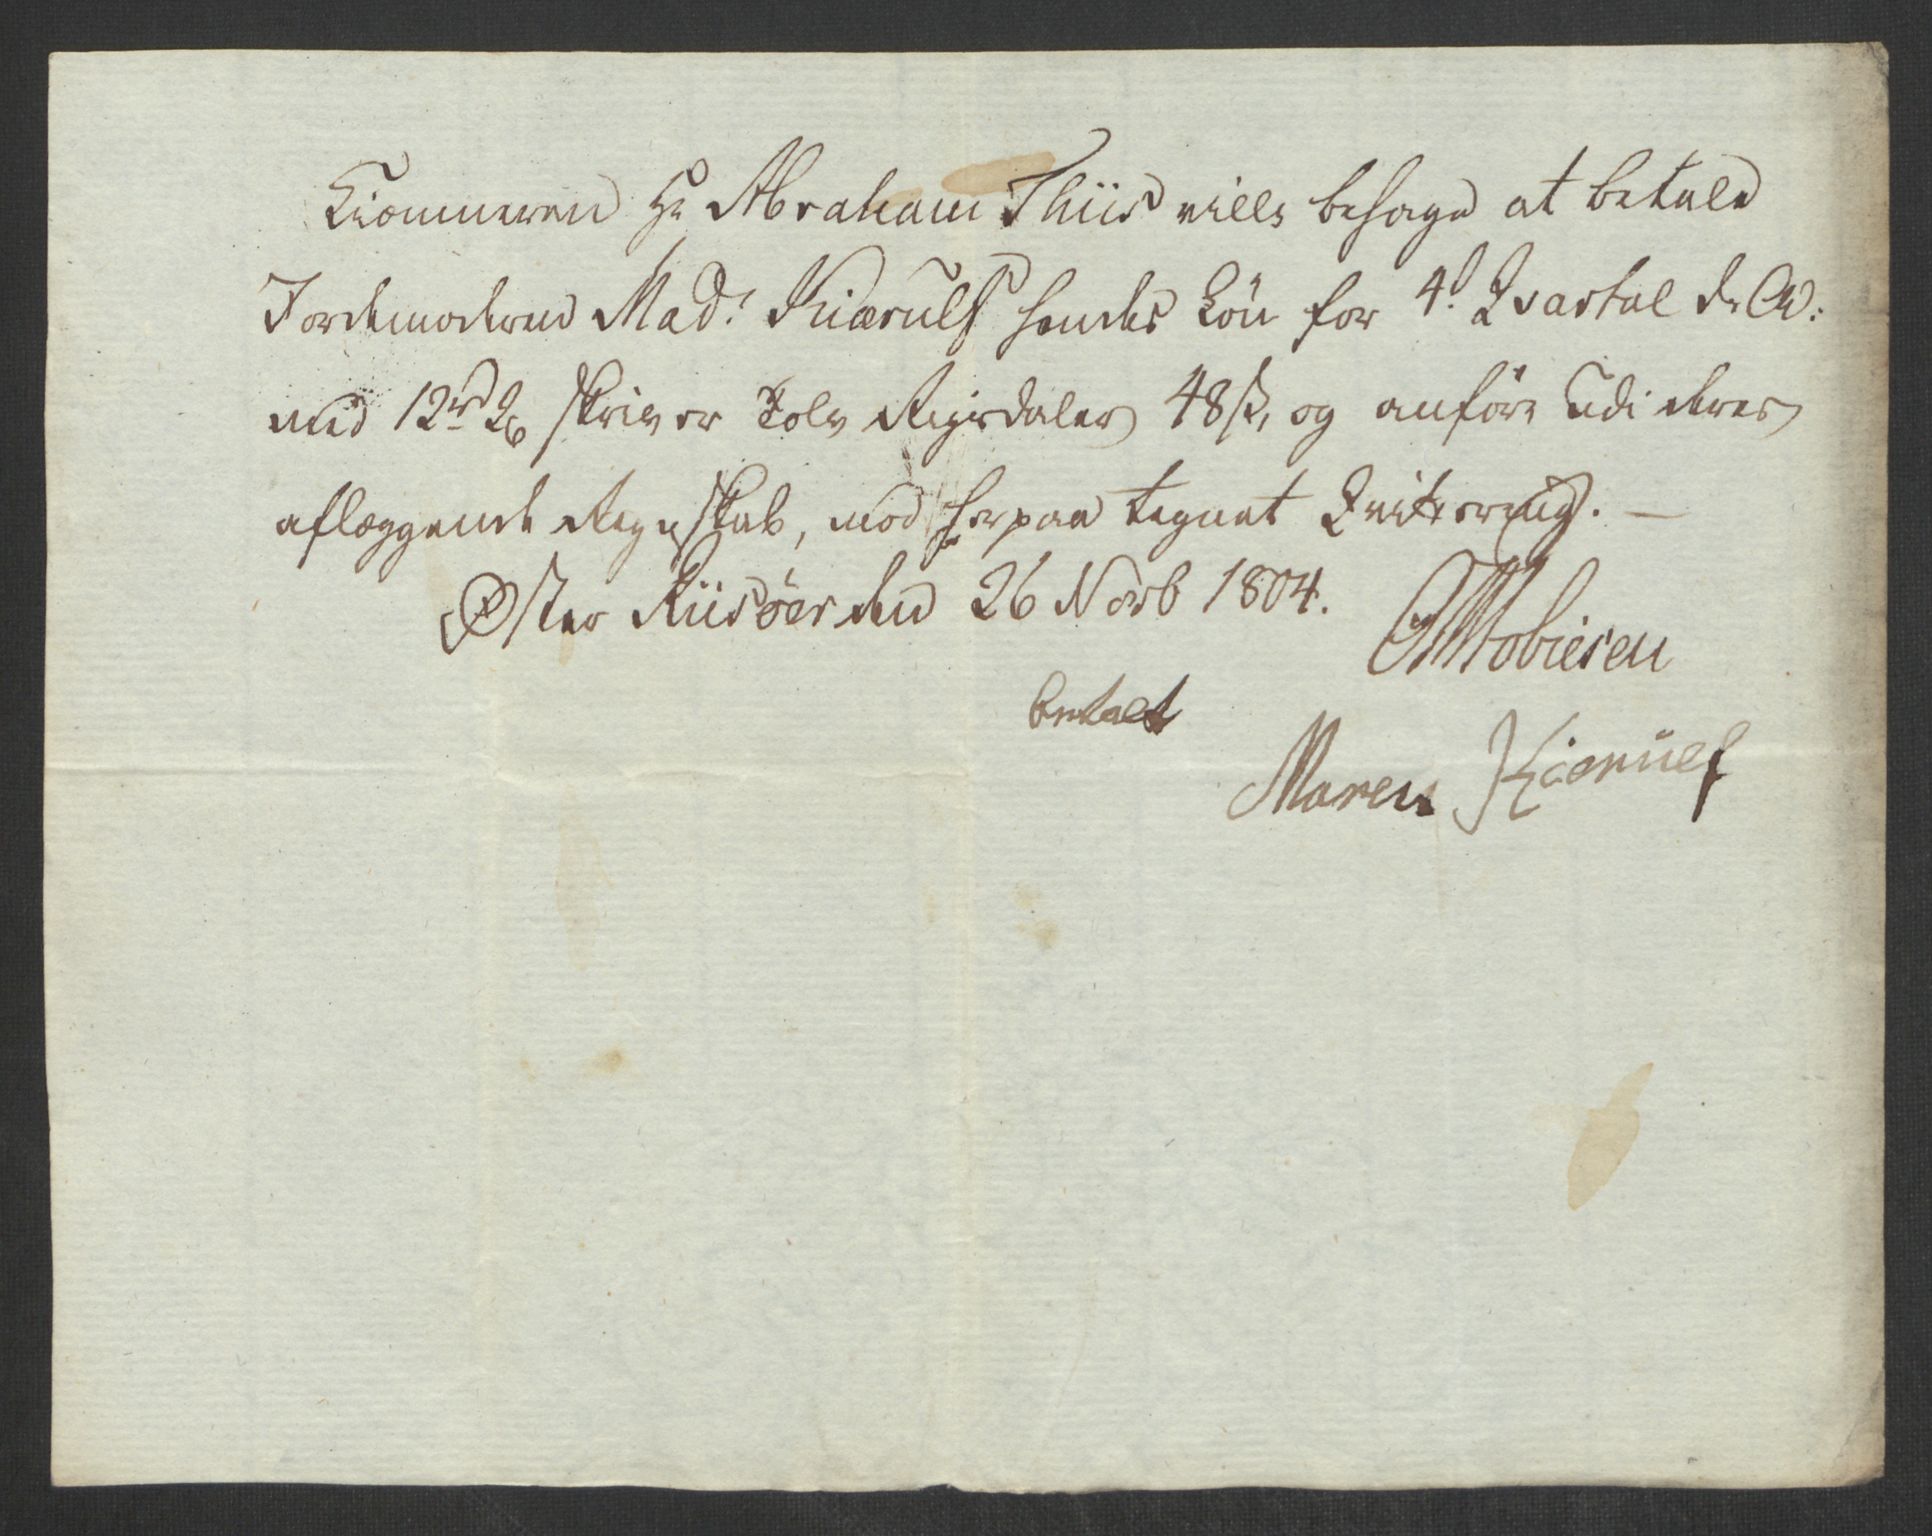 Kiæmneren Hr Abraham Thiis ville behage at betale
Jordemoderen Mad: Kiærulf hendes Løn for 4d Qvartal d: A:
med 12rd skriver Tolv Rigsdaler 48 ß, og anføre Udi deres
aflæggende Regnskab, mod herpaa tegnet Qvitering. —
Øster Riisöer den 26 Novb 1804.
Tobiesen
betalt
Maren Kierulf